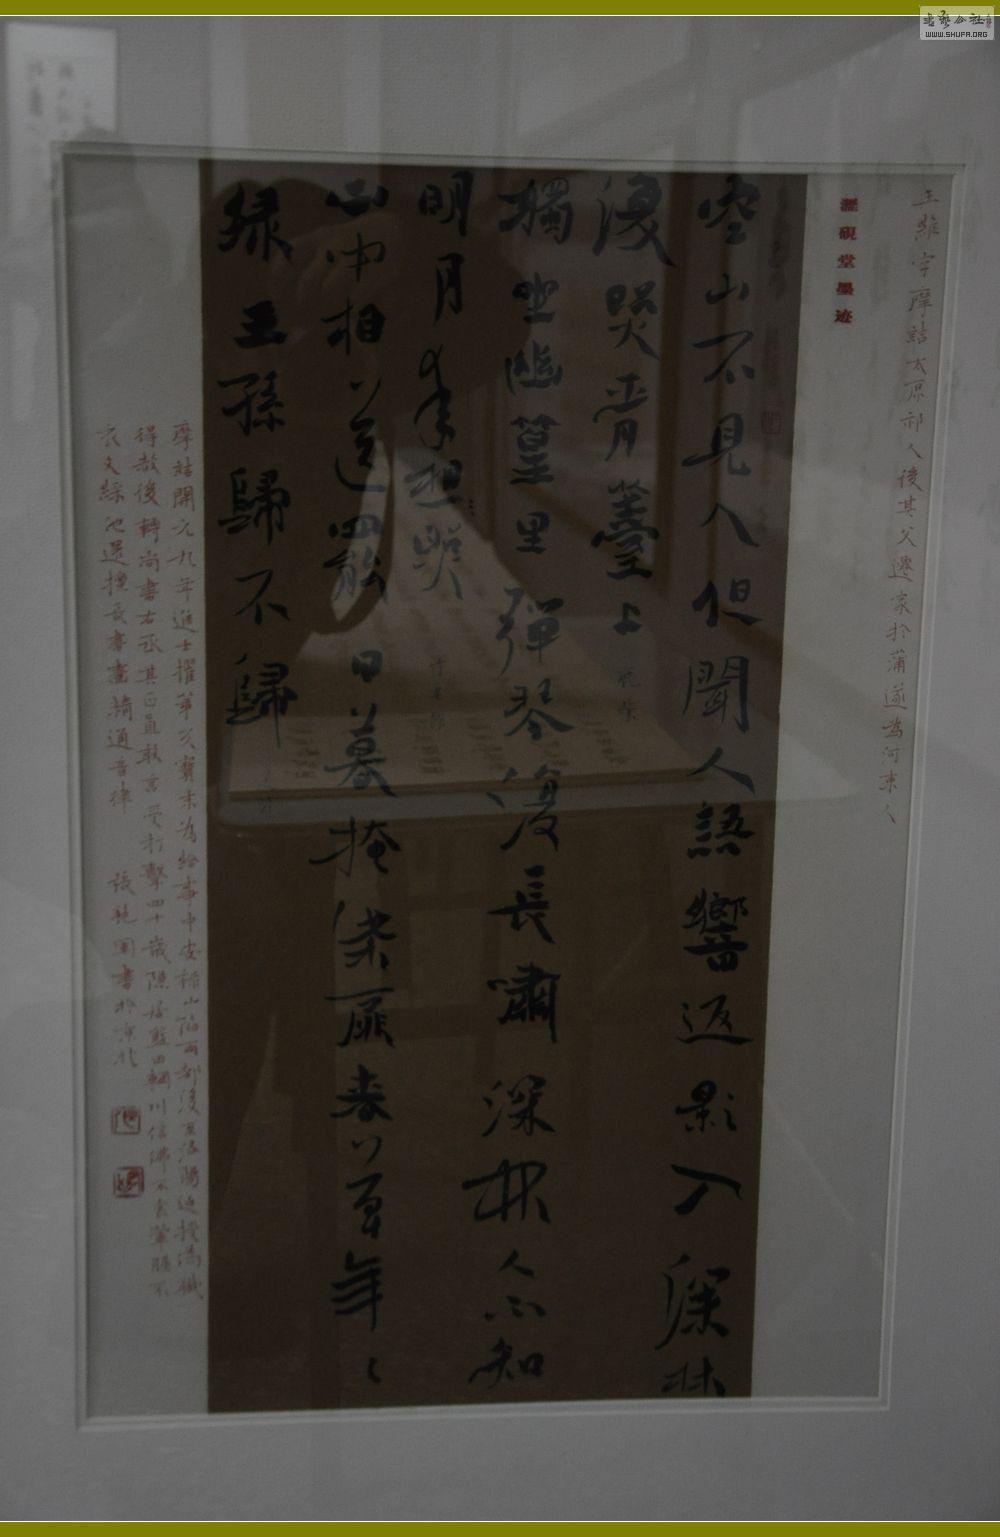 王維字摩詰太原祁人後其父遷家於蒲遂為河東人
硯堂墨迹
空山不見人但聞人語響返影入深林
復照青苔上
鹿柴
獨坐幽篁里彈琴復長嘯深林人不知
明月來相照
竹里館
山中相送罷日暮掩柴扉春草年年
綠王孫歸不歸
摩詰開元九年進士擢第天寶末為給事中安祿山陷兩都後
得赦後轉尚書右丞其正直敢言受打擊四十歲隱居藍田輞川信佛不食葷腥不
衣文綵他還擅長書畫精通音律
書於京北
書艺公社
WWW.SHUFA.ORG